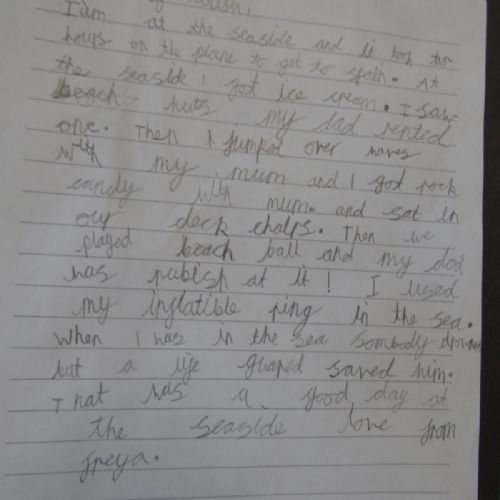 I am at the seaside and it took two
hours on the plane to get to spain. At
the seaside I got ice cream. I saw
beach huts my dad rented
one. Then I jumped over waves
with my mum and I got rock
candy with mum. and sat in
our deck chairs. Then we
played beach ball and my dad
was rubish at it! I used
my inflatible ring in the sea.
When I was in the sea sombody drowned
but a life guared saved him.
That was a good day at
the seaside love from
freya.